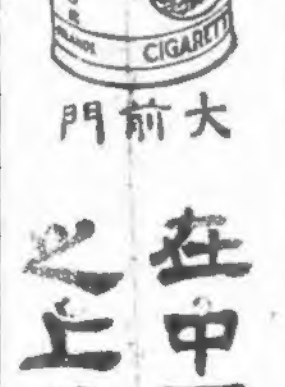 CIGARETT
門前大
在中
之上